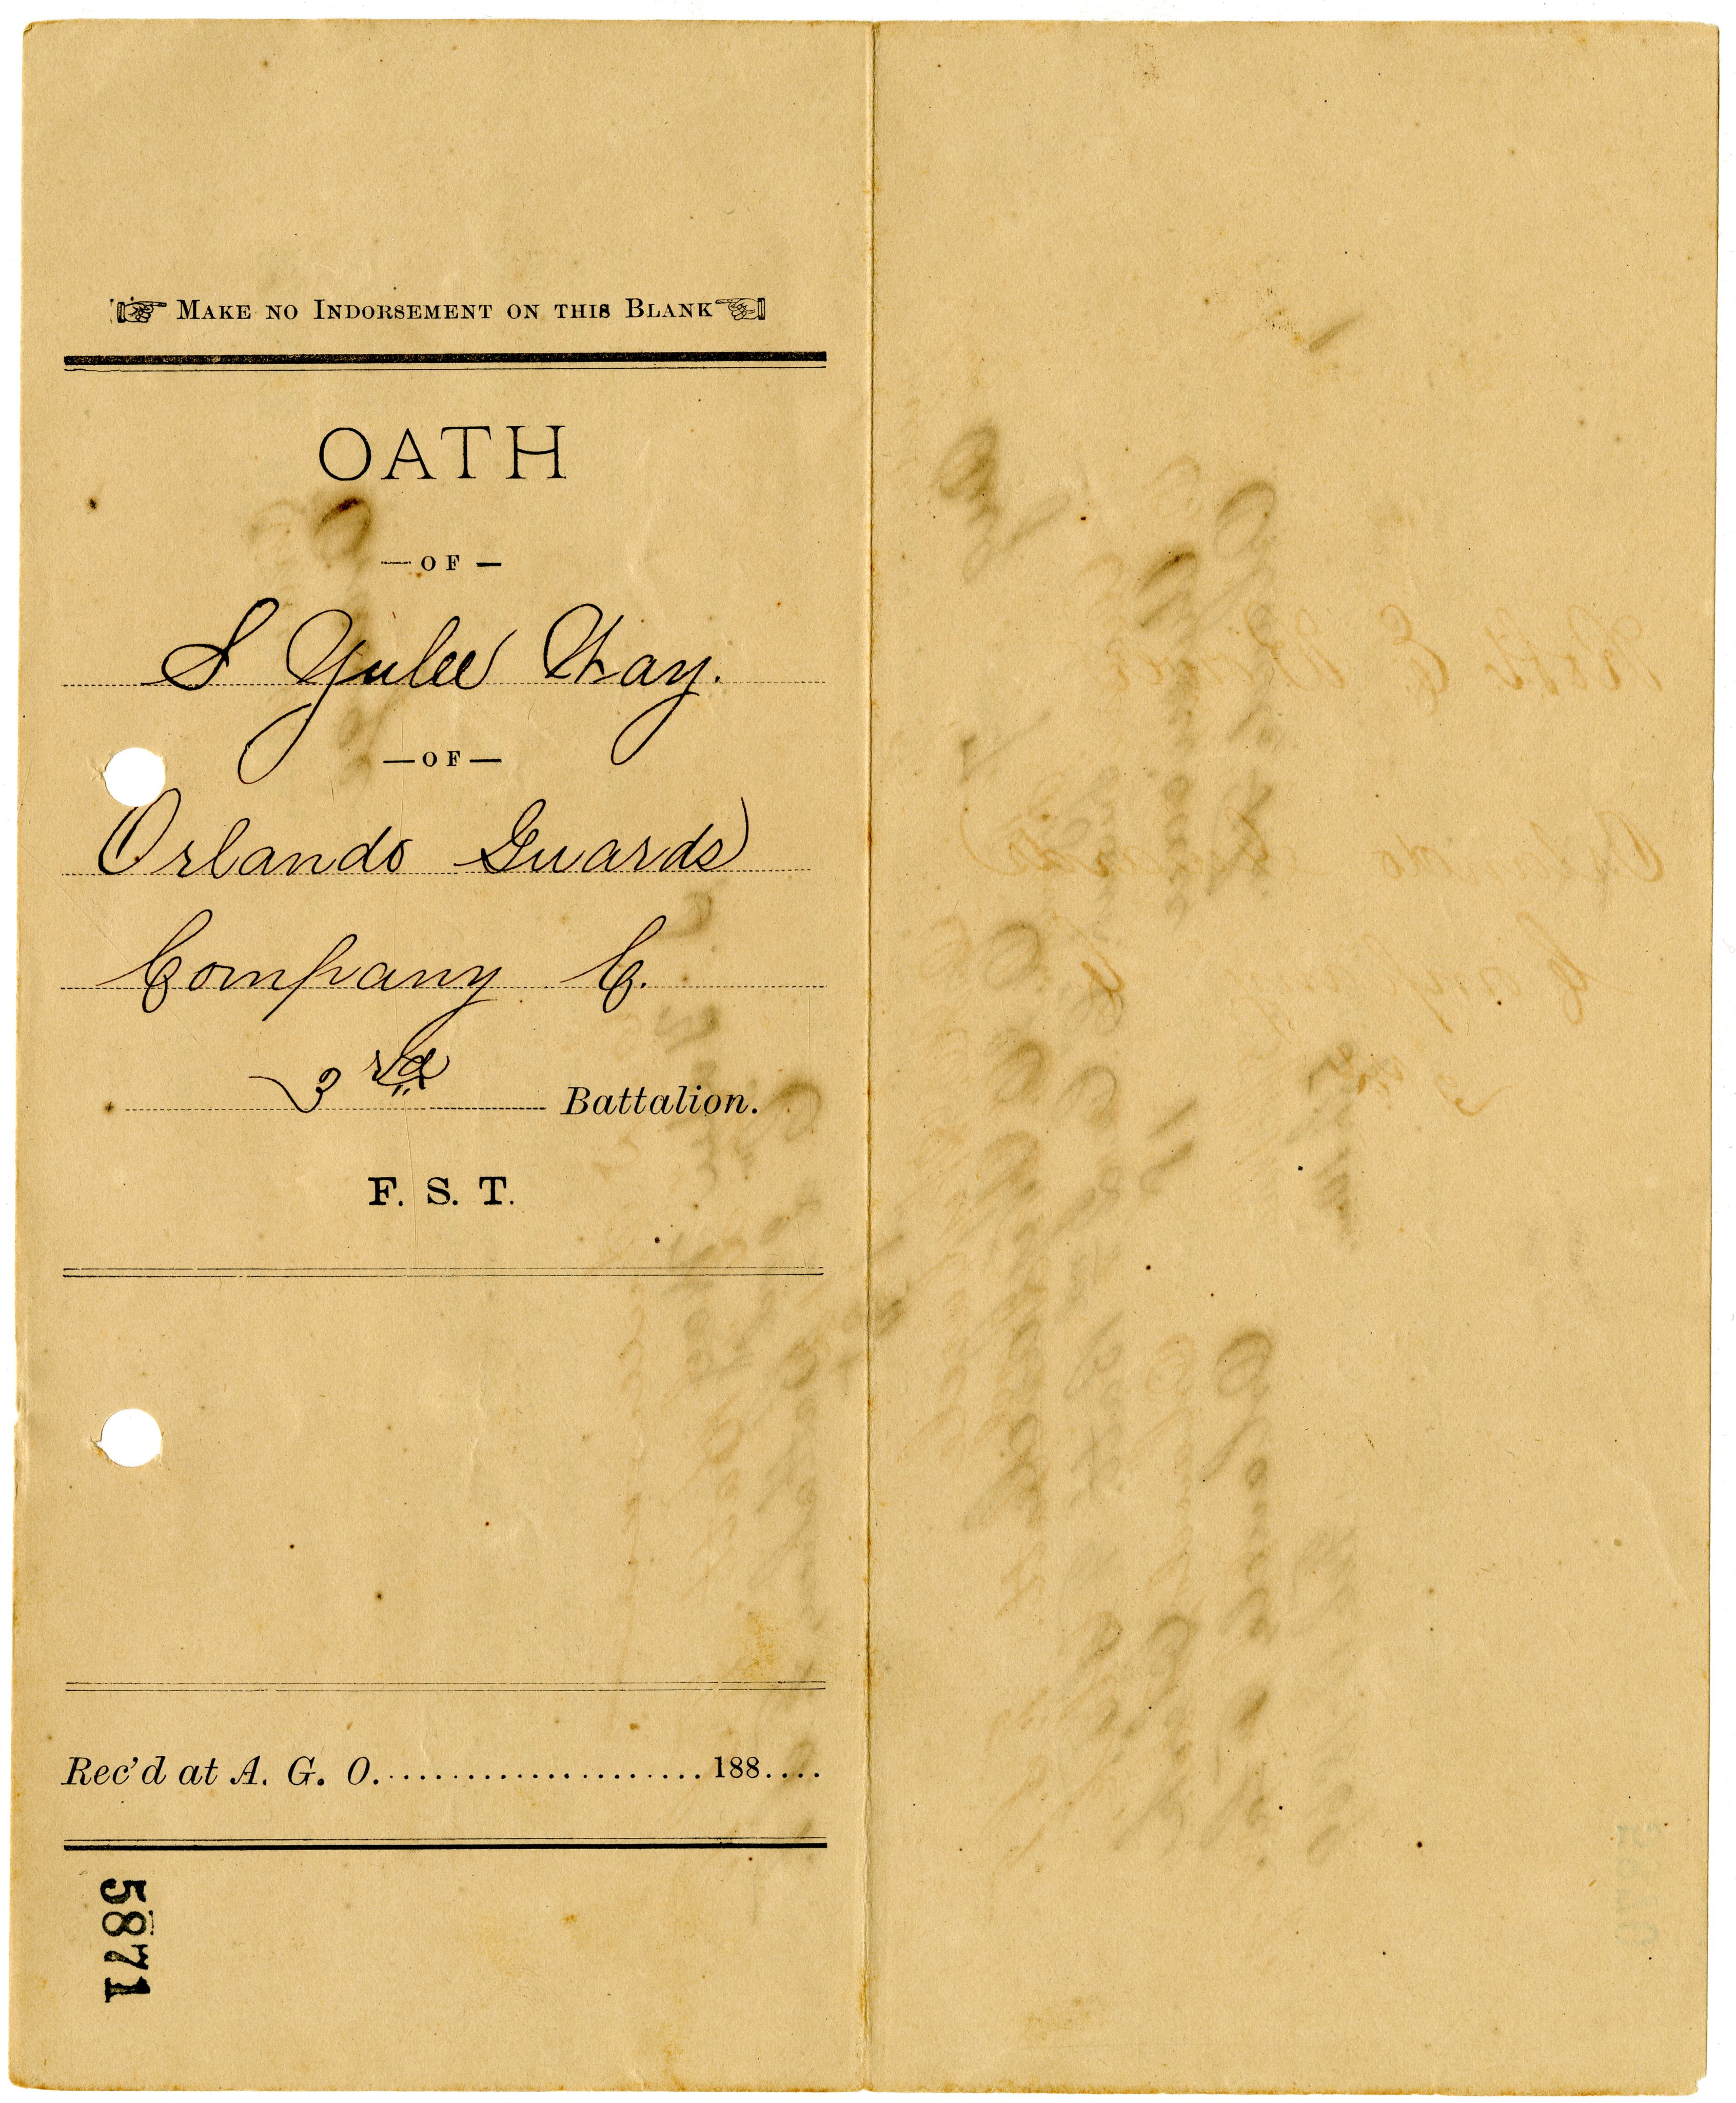 MAKE NO INDORSEMENT ON THIS BLANK
OATH
— OF —
S Yulee Way.
— OF —
Orlando Guards
Company C.
3rd Battalion.
F. S. T.
Rec'd at A. G. O. ..................... 188....
5871